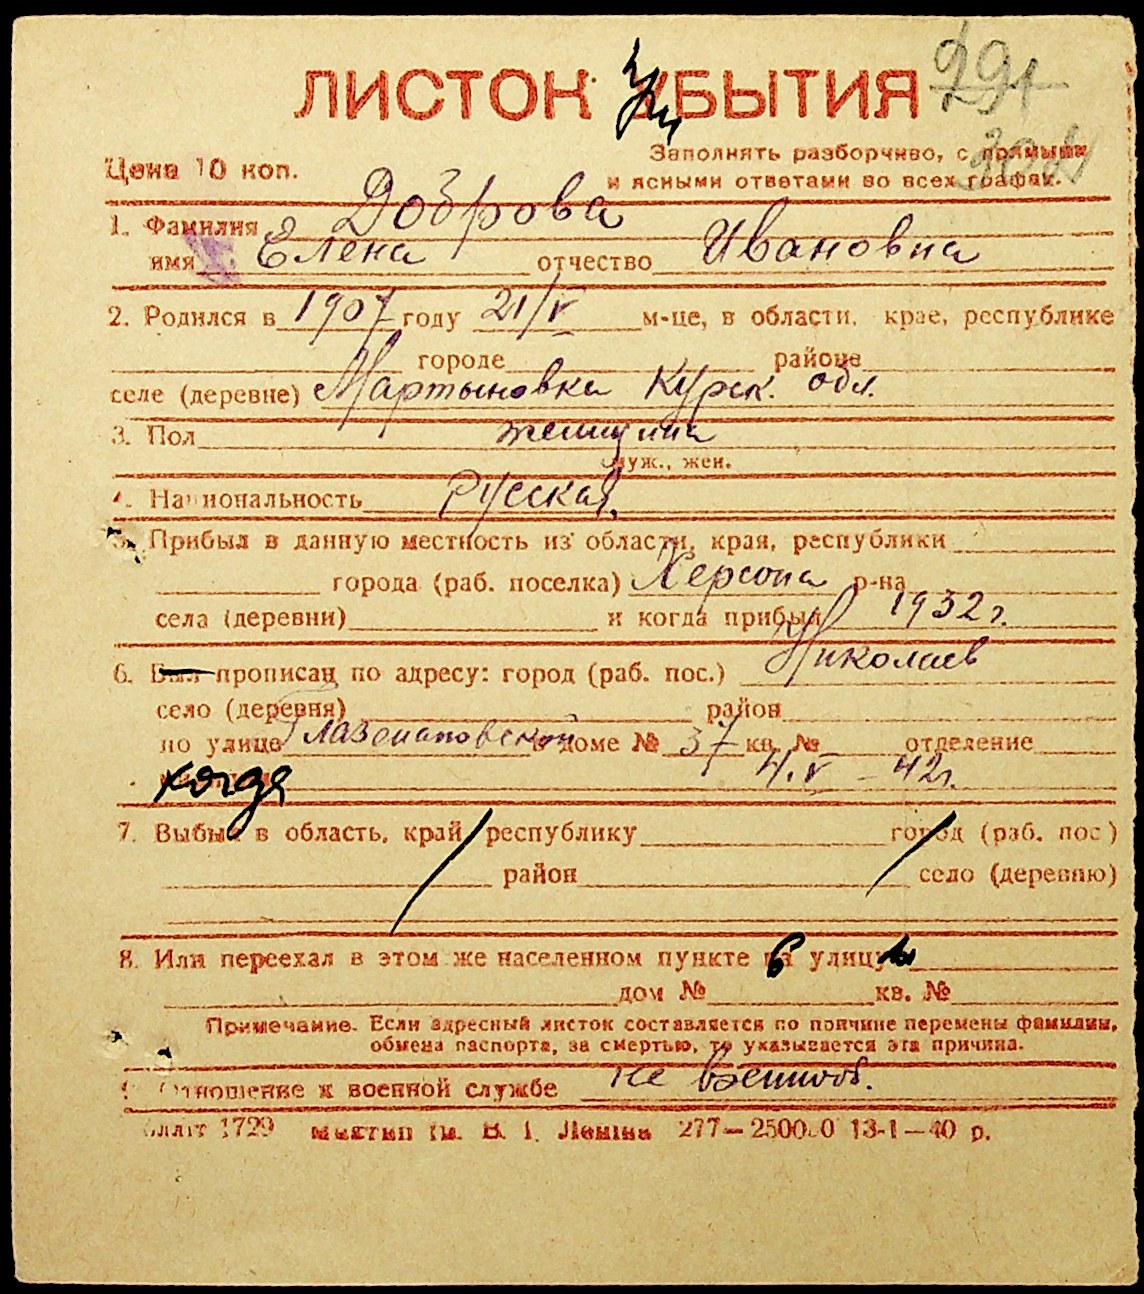 ЛИСТОК УБЫТИЯ
Цена 10 коп.
Заполнять разборчиво, с прямыми
и ясными ответами во всех графах.
1. Фамилия Доброва
имя Елена отчество Ивановна
2. Родился в 1907 году 21/V м-це, в области, крае, республике
городе районе
селе (деревне) Мартыновка Курск. обл.
3. Пол женщина
муж., жен.
4. Национальность Русская.
5. Прибыл в данную местность из области, края, республики
города (раб. поселка) Херсона р-на
села (деревни) и когда прибыл 1932 г.
6. Был прописан по адресу: город (раб. пос.) Николаев
село (деревня) район
по улице доме № 37 кв. № отделение
когда 4.V – 42 г.
7. Выбыл в область, край, республику город (раб. пос)
район село (деревню)
8. Или переехал в этом же населенном пункте в улицы
дом № кв. №
Примечание. Если адресный листок составляется по причине перемены фамилии,
обмена паспорта, за смертью, то указывается эта причина.
9. Отношение к военной службе не военнооб.
1729 им. В. И. Ленина 277—250000 13-1—40 р.